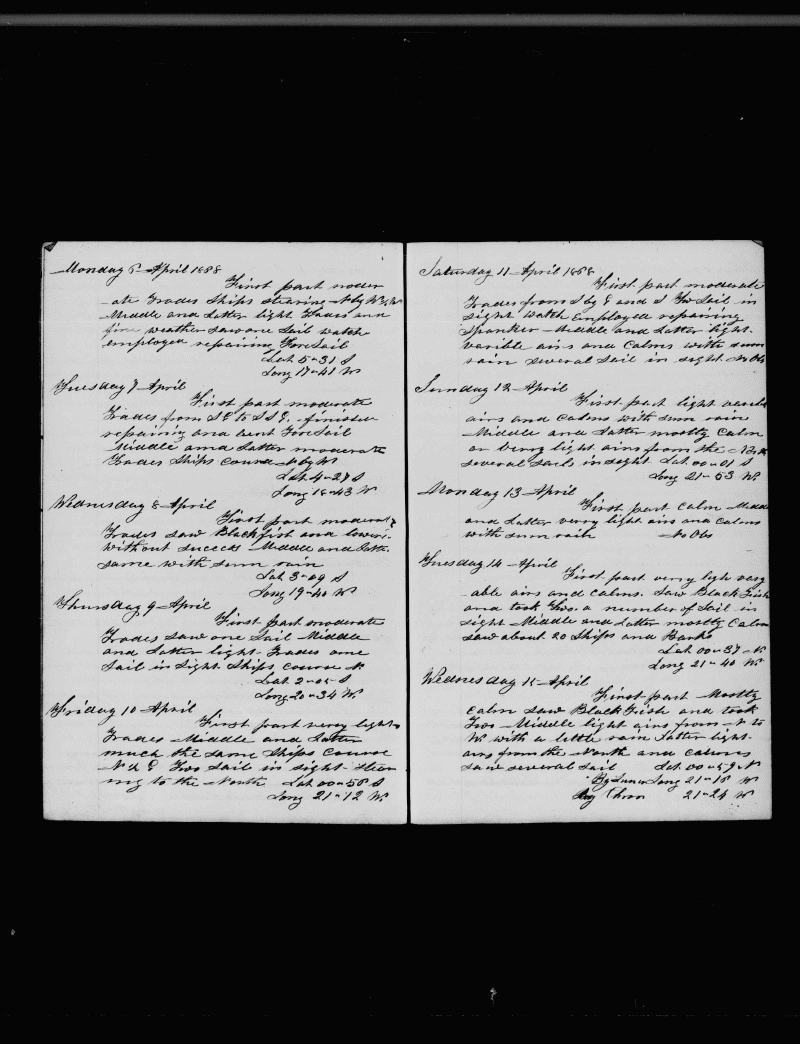 Monday 6 April 1868
First part moder
ate Trades Ships steering N by W
Middle and Latter light Trades and
fine weather saw one Sail watch
employed repairing Fore Sail
Lat 5-31 S
Long 17-41 W
Tuesday 7 April
First part moderate
Trades from S E to S S E. finished
repairing and bent Fore Sail
Middle and Latter moderate
Trades Ships Course N by W
Lat 4-27 S
Long 18-43 W
Wednesday 8 April
First part moderate
Trades saw Blackfish and lowered
without success Middle and Latter
same with sum rain
Lat 3-09 S
Long 19-40 W
Thursday 9 April
First part moderate
Trades saw one Sail Middle
and Latter light Trades one
Sail in sight Ships Course N
Lat 2-05 S
Long 20-34 W
Friday 10 April
First part verry light
Trades Middle and Latter
much the same Ships Course
N & E Two Sail in sight Steer
ing to the North Lat 00-58 S
Long 21-12 W
Saturday 11 April 1868
First part moderate
Trades from S by E and S Two Sail in
sight watch employed repairing
Spanker Middle and Latter light
varible airs and Calms with sum
rain several Sail in sight No Obs
Sunday 12 April
First part light varible
airs and Calms with sum rain
Middle and Latter mostly Calm
or verry light airs from the
several Sails in sight Lat 00-01 S
Long 21-53 W
Monday 13 April
First part Calm Middle
and Latter verry light airs and Calms
with sum rain No Obs
Tuesday 14 April
First part verry light vary
able airs and Calms. Saw Black Fish
and took Two. a number of Sail in
sight Middle and Latter mostly Calm
saw about 20 Ships and Barks
Lat 00-37 N
Long 21-40 W
Wednesday 15 April
First part Mostly
Calm saw Black Fish and took
Two Middle light airs from N to
W with a little rain Latter light
airs from the North and Calms
saw several Sail Lat 00-59 N
By Lunar Long 21-18 W
By Chron 21-24 W